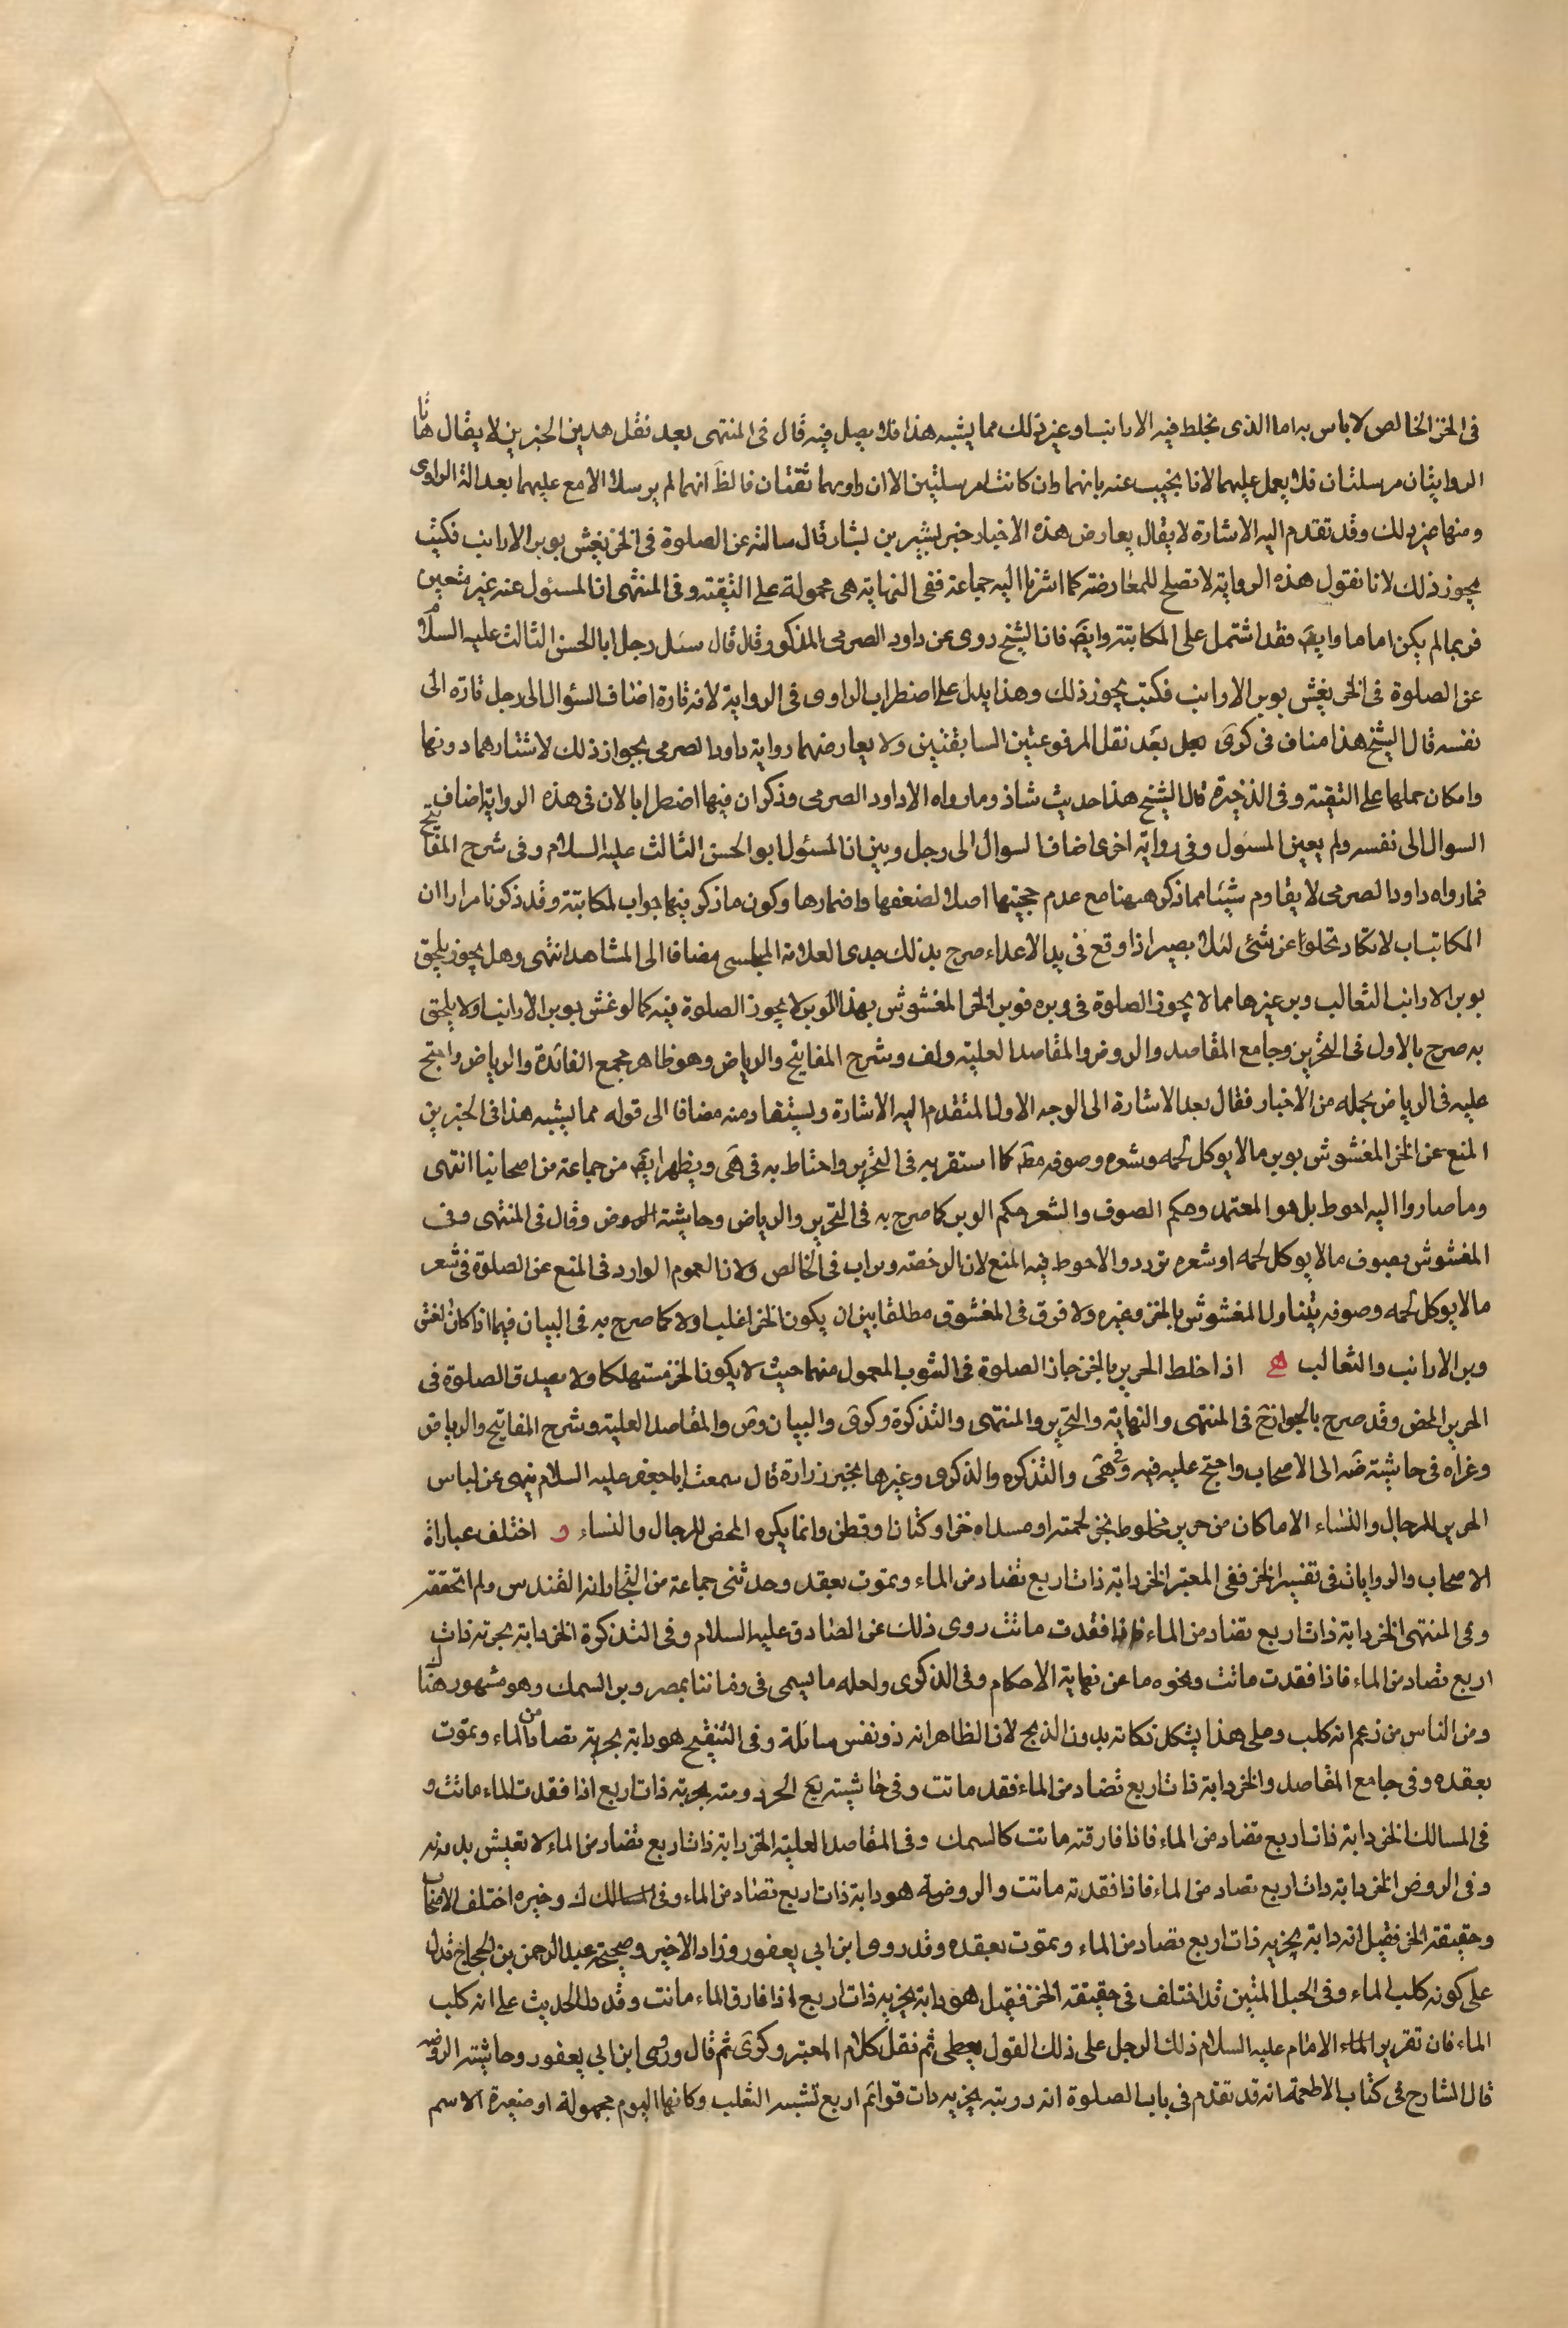 في الخز الخالص لا باس به اما الذى يخلط فيه الارانب او غير ذلك مما يشبه هذا فلا يصل فيه قال في المنتهى بعد نقل هذين الخبرين لا يقال هاتان
الروايتان مرسلتان فلا يعمل عليهما لانا نجيب عنه بانهما وان كانتا مرسلتين الا ان راويهما ثقتان فالظ انهما لم يرسلا الا مع علمهما بعدالة الراوى
ومنها غير ذلك وقد تقدم اليه الاشارة لا يقال يعارض هذه الاخبار خبر بشير بن بشار قال سالته عن الصلوة في الخز يغش بوبر الارانب فكتب
يجوز ذلك لانا نقول هذه الرواية لا تصلح للمعارضة كما اشرنا اليه جماعة ففى النهاية هى محمولة على التقية وفى المنتهى ان المسئول عنه غير متعين
فربما لم يكن اماما وايض فقد اشتمل على المكاتبة وايض فان الشيخ روى عن داود الصرمى المذكور وقال قال سئل رجل ابا الحسن الثالث عليه السلام
عن الصلوة في الخز يغش بوبر الارانب فكتب يجوز ذلك وهذا يدل على اضطراب الراوى في الرواية لانه تارة اضاف السؤال الى رجل تارة الى
نفسه قال الشيخ هذا مناف في كرى بعد نقل المرفوعتين السابقتين ولا يعارضهما رواية داود الصرمى بجواز ذلك لاشتهارهما دونها
وامكان حملها على التقية وفى الذخيرة قال الشيخ هذا حديث شاذ وما رواه الا داود الصرمى وذكر ان فيها اضطرابا لان في هذه الرواية اضاف
السوال الى نفسه ولم يعين المسئول وفى رواية اخرى اضاف السوال الى رجل وبين ان المسئول ابو الحسن الثالث عليه السلام وفى شرح المفاتيح
فما رواه داود الصرمى لا يقاوم شيئا مما ذكر ههنا مع عدم حجيتها اصلا لضعفها واضمارها وكون ما ذكر فيها جواب المكاتبة وقد ذكرنا مرارا ان
المكاتبات لا تكاد تخلو عن شئ لئلا يصير اذا وقع في يد الاعداء صرح بذلك جدى العلامة المجلسى مضافا الى المشاهد انتهى وهل يجوز يلحق
بوبر الارانب الثعالب وبر غيرها مما لا يجوز الصلوة في وبره فوبر الخز المغشوش بهذا الوبر لا يجوز الصلوة فيه كما لو غش بوبر الارانب او لا يلحق
به صرح بالاول في التحرير وجامع المقاصد والروض والمقاصد العلية ولف وشرح المفاتيح والرياض وهو ظاهر مجمع الفائدة والرياض واحتج
عليه في الرياض بجملة من الاخبار فقال بعد الاشارة الى الوجه الاول المتقدم اليه الاشارة ويستفاد منه مضافا الى قوله مما يشبه هذا في الخبرين
المنع عن الخز المغشوش بوبر ما لا يوكل لحمه وشعره وصوفه مط كما استقر به في التحرير واحتاط به في هى ويظهر ايض من جماعة من اصحابنا انتهى
وما صاروا اليه احوط بل هو المعتمد وحكم الصوف والشعر حكم الوبر كما صرح به في التحرير والرياض وحاشية الروض وقال في المنتهى وفى
المغشوش بصوف ما لا يوكل لحمه او شعره تردد والاحوط فيه المنع لان الرخصة وردت في الخالص ولان العموم الوارد في المنع عن الصلوة في شعر
ما لا يوكل لحمه وصوفه يتناول المغشوش بالخز وغيره ولا فرق في المغشوق مطلقا بين ان يكون الخز اغلب او لا كما صرح به في البيان فيما اذا كان الغش
وبر الارانب والثعالب ه اذا خلط الحرير بالخز جاز الصلوة في الثوب المعمول منهما حيث لا يكون الخز مستهلكا ولا يصدق الصلوة في
الحرير المحض وقد صرح بالجواز يج في المنتهى والنهاية والتحرير والمنتهى والتذكرة وكرى والبيان وض والمقاصد العلية وشرح المفاتيح والرياض
وعزاه في حاشية ضه الى الاصحاب واحتج عليه فيه وفى هى والتذكره والذكرى وغيرها بخبر زرارة قال سمعت ابا جعفر عليه السلام ينهى عن لباس
الحرير للرجال والنساء الا ما كان من حرير مخلوط بخز لحمته او مسداه خز او كتان او قطن وانما يكره المحض للرجال والنساء و اختلف عبارات
الاصحاب والروايات في تفسير الخز ففى المعتبر الخز دابة ذات اربع تصاد من الماء ويموت بعقد وحدثنى جماعة من التجار انه القندس ولم اتحققه
وفى المنتهى الخز دابة ذات اربع تصاد من الماء فاذا فقدت ماتت روى ذلك عن الصادق عليه السلام وفى التذكرة الخز دابة بحرية ذات
اربع تصاد من الماء فاذا فقدت ماتت ونحوه ما عن نهاية الاحكام وفى الذكرى ولعله ما يسمى في زماننا بمصر وبر السمك وهو مشهور هناك
ومن الناس من زعم انه كلب وعلى هذا يشكل ذكاته بدون الذبح لان الظاهر انه ذو نفس سائلة وفى التنقيح هو دابة بحرية تصاد من الماء ويموت
بعقده وفى جامع المقاصد والخز دابة ذات اربع تصاد من الماء فقد ماتت وفى حاشية يع الخز دويبة بحرية ذات اربع اذا فقدت الماء ماتت و
في المسالك الخز دابة ذات اربع تصاد من الماء فاذا فارقته ماتت كالسمك وفى المقاصد العلية الخز دابة ذات اربع تصاد من الماء لا تعيش بدونه
وفى الروض الخز دابة ذات اربع تصاد من الماء فاذا فقدته ماتت والروضة هو دابة ذات اربع تصاد من الماء وفى المسالك ك وخيره اختلف الاصحاب
وحقيقة الخز فقيل انه دابة بحرية ذات اربع تصاد من الماء ويموت بعقده وقد روى ابن ابي يعفور وزاد الاخير وصحيحة عبد الرحمن بن الحجاج تدل
على كونه كلب الماء وفى الحبل المتين قد اختلف في حقيقة الخز فقيل هو دابة بحرية ذات اربع اذا فارق الماء ماتت وقد دل الحديث على انه كلب
الماء فان تقرير الامام عليه السلام ذلك الرجل على ذلك القول يعطى ثم نقل كلام المعتبر وكرى ثم قال وروى ابن ابي يعفور وحاشية الروضه
قال الشارح في كتاب الاطعمة انه قد تقدم في باب الصلوة انه دويبة بحرية ذات قوائم اربع تشبه الثعلب وكانها اليوم مجهولة او متغيرة الاسم